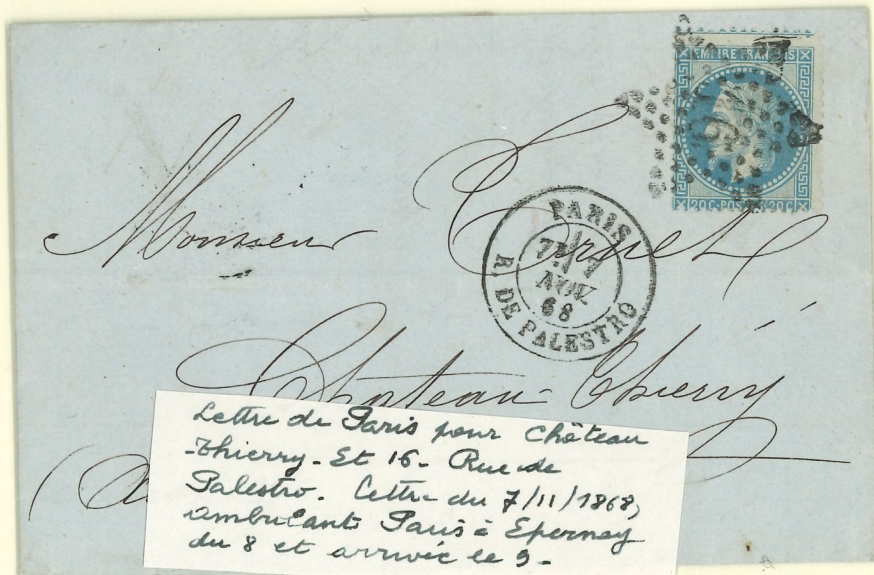 EMPIRE FRANÇAIS
20C-POSTES-20C
Monsieur Cornet
PARIS
7
NOV
68
R. DE PALESTRO
Chateau-Thierry
(A
Lettre de Paris pour Château
-Thierry - Et 16 - Rue de
Palestro. Lettre du 7/11/1868,
ambulant Paris à Epernay
du 8 et arrivée le 9 -